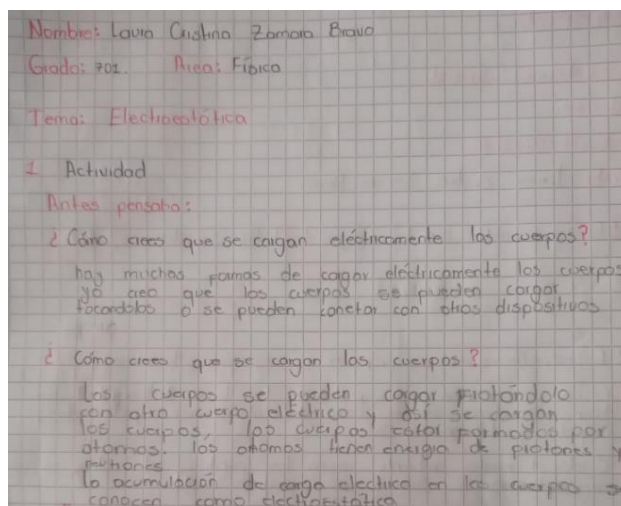 Nombre: Laura Cristina Zamora Bravo
Grado: 701. Area: Física
Tema: Electroestática
1 Actividad
Antes pensaba:
¿Cómo crees que se cargan eléctricamente los cuerpos?
hay muchas formas de cargar eléctricamente los cuerpos
yo creo que los cuerpos se pueden cargar
tocandolos o se pueden conetar con otros dispositivos
¿Cómo crees que se cargan los cuerpos?
Los cuerpos se pueden cargar frotándolo
con otro cuerpo eléctrico y así se cargan
los cuerpos, los cuerpos están formados por
atomos. los atomos tienen energia de protones y
la acumulación de carga electrica en los cuerpos se
conocen como electroestática